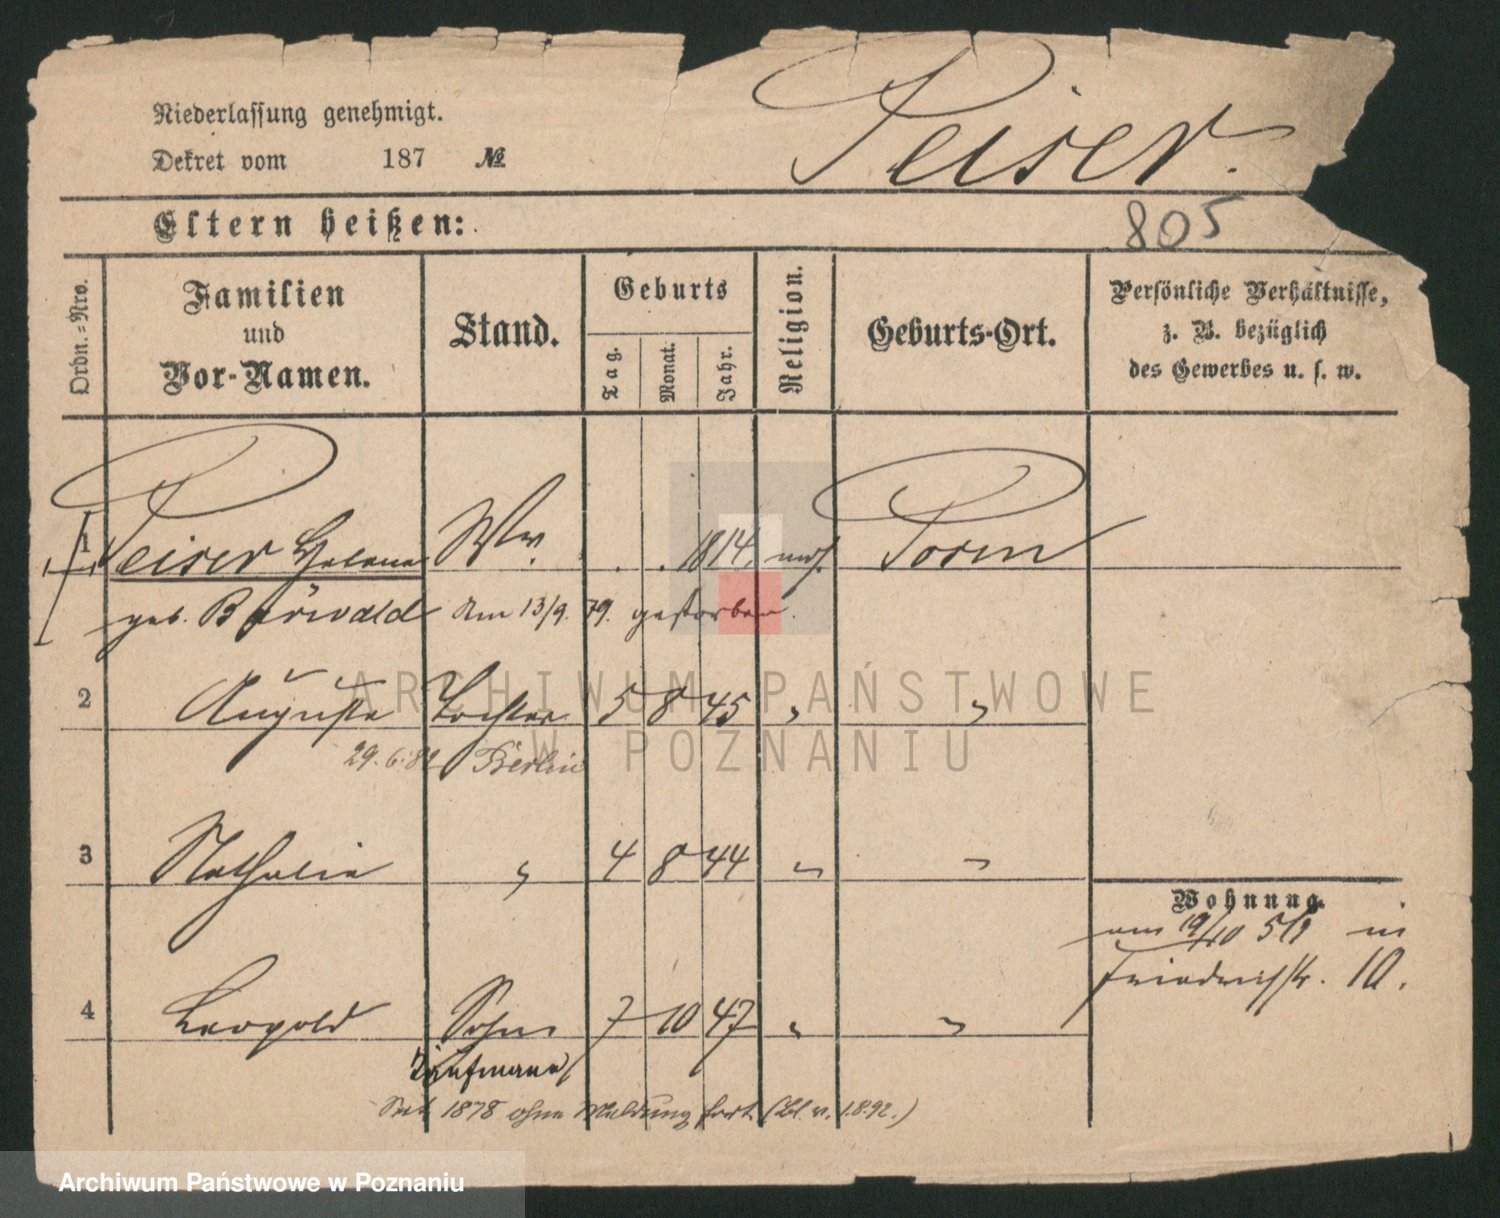 Niederlassung genehmigt.
Dekret vom 187 №
Peiser.
Eltern heißen:
805
Ordn.=Nro.
Familien
und
Vor-Namen.
Stand.
Geburts
Tag.
Monat.
Jahr.
Religion.
Geburts-Ort.
Persönliche Verhältnisse,
z. B. bezüglich
des Gewerbes u. s. w.
1 Peiser Helene Ww. . . 1814 mos. Posen
geb. Bärwald Am 13/9. 79. gestorben.
2 Auguste Tochter 5 8 45 " "
29.6.82 Berlin
3 Nathalie " 4 8 44 " "
Wohnung.
am 19/10 in
Friedrichstr. 10.
4 Leopold Sohn 7 10 47 " "
Kaufmann
Seit 1878 ohne Meldung fort (Bl. v. 1.8.92.)
ARCHIWUM PAŃSTWOWE
W POZNANIU
Archiwum Państwowe w Poznaniu